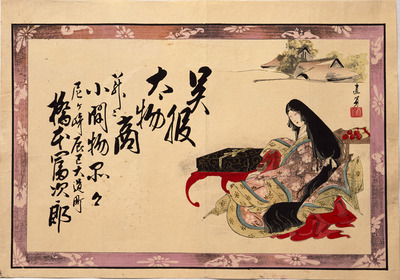 呉服
太物
商
并ニ
小間物品々
尼ヶ崎辰巳大道町
橋本富次郎